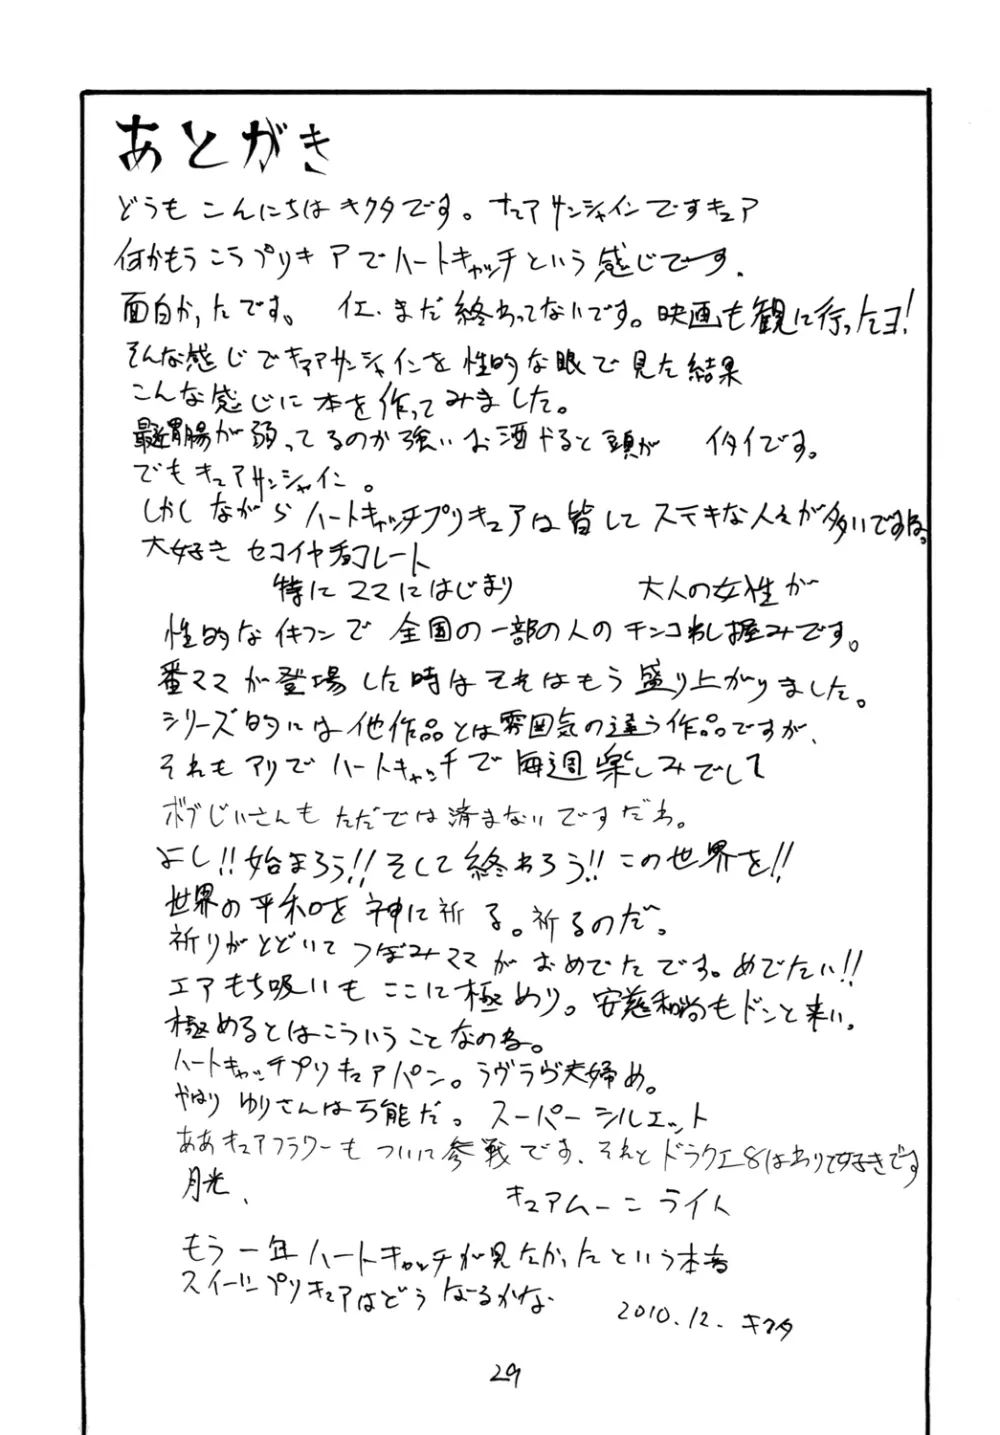 あとがき
どうも こんにちは キクタです。キュアサンシャインですキュア
何かもうこうプリキュアでハートキャッチという感じです.
面白かったです。 イエ、まだ終わってないです。映画も観に行ったヨ!
そんな感じでキュアサンシャインを性的な眼で見た結果
こんな感じに本を作ってみました。
最近胃腸が弱ってるのか強いお酒やると頭が イタイです。
でもキュアサンシャイン。
しかしながらハートキャッチプリキュアは皆してステキな人々が多いですね。
大好き セコイヤチョコレート
特にママにはじまり 大人の女性が
性的なイキフンで全国の一部の人のチンコわし握みです。
番ママが登場した時はそれはもう盛り上がりました。
シリーズ的には他作品とは雰囲気の違う作品ですが、
それもアリでハートキャッチで毎週楽しみでして
ボブじいさんもただでは済まないですだわ。
よし!!始まろう!!そして終わろう!!この世界を!!
世界の平和を神に祈る。祈るのだ。
祈りがとどいてつぼみママがおめでたです。めでたい!!
エアもち吸いもここに極めり。安慈和尚もドンと来い.
極めるとはこういうことなのる。
ハートキャッチプリキュアパン。ラヴラヴ夫婦め。
やはりゆりさんは万能だ。スーパーシルエット
ああキュアフラワーもついに参戦です、それとドラクエ8はわりと好きです
月光、
キュアムーンライト
もう一年ハートキャッチが見たかったという本音
スイートプリキュアはどうなるかな
2010.12. キクタ
29